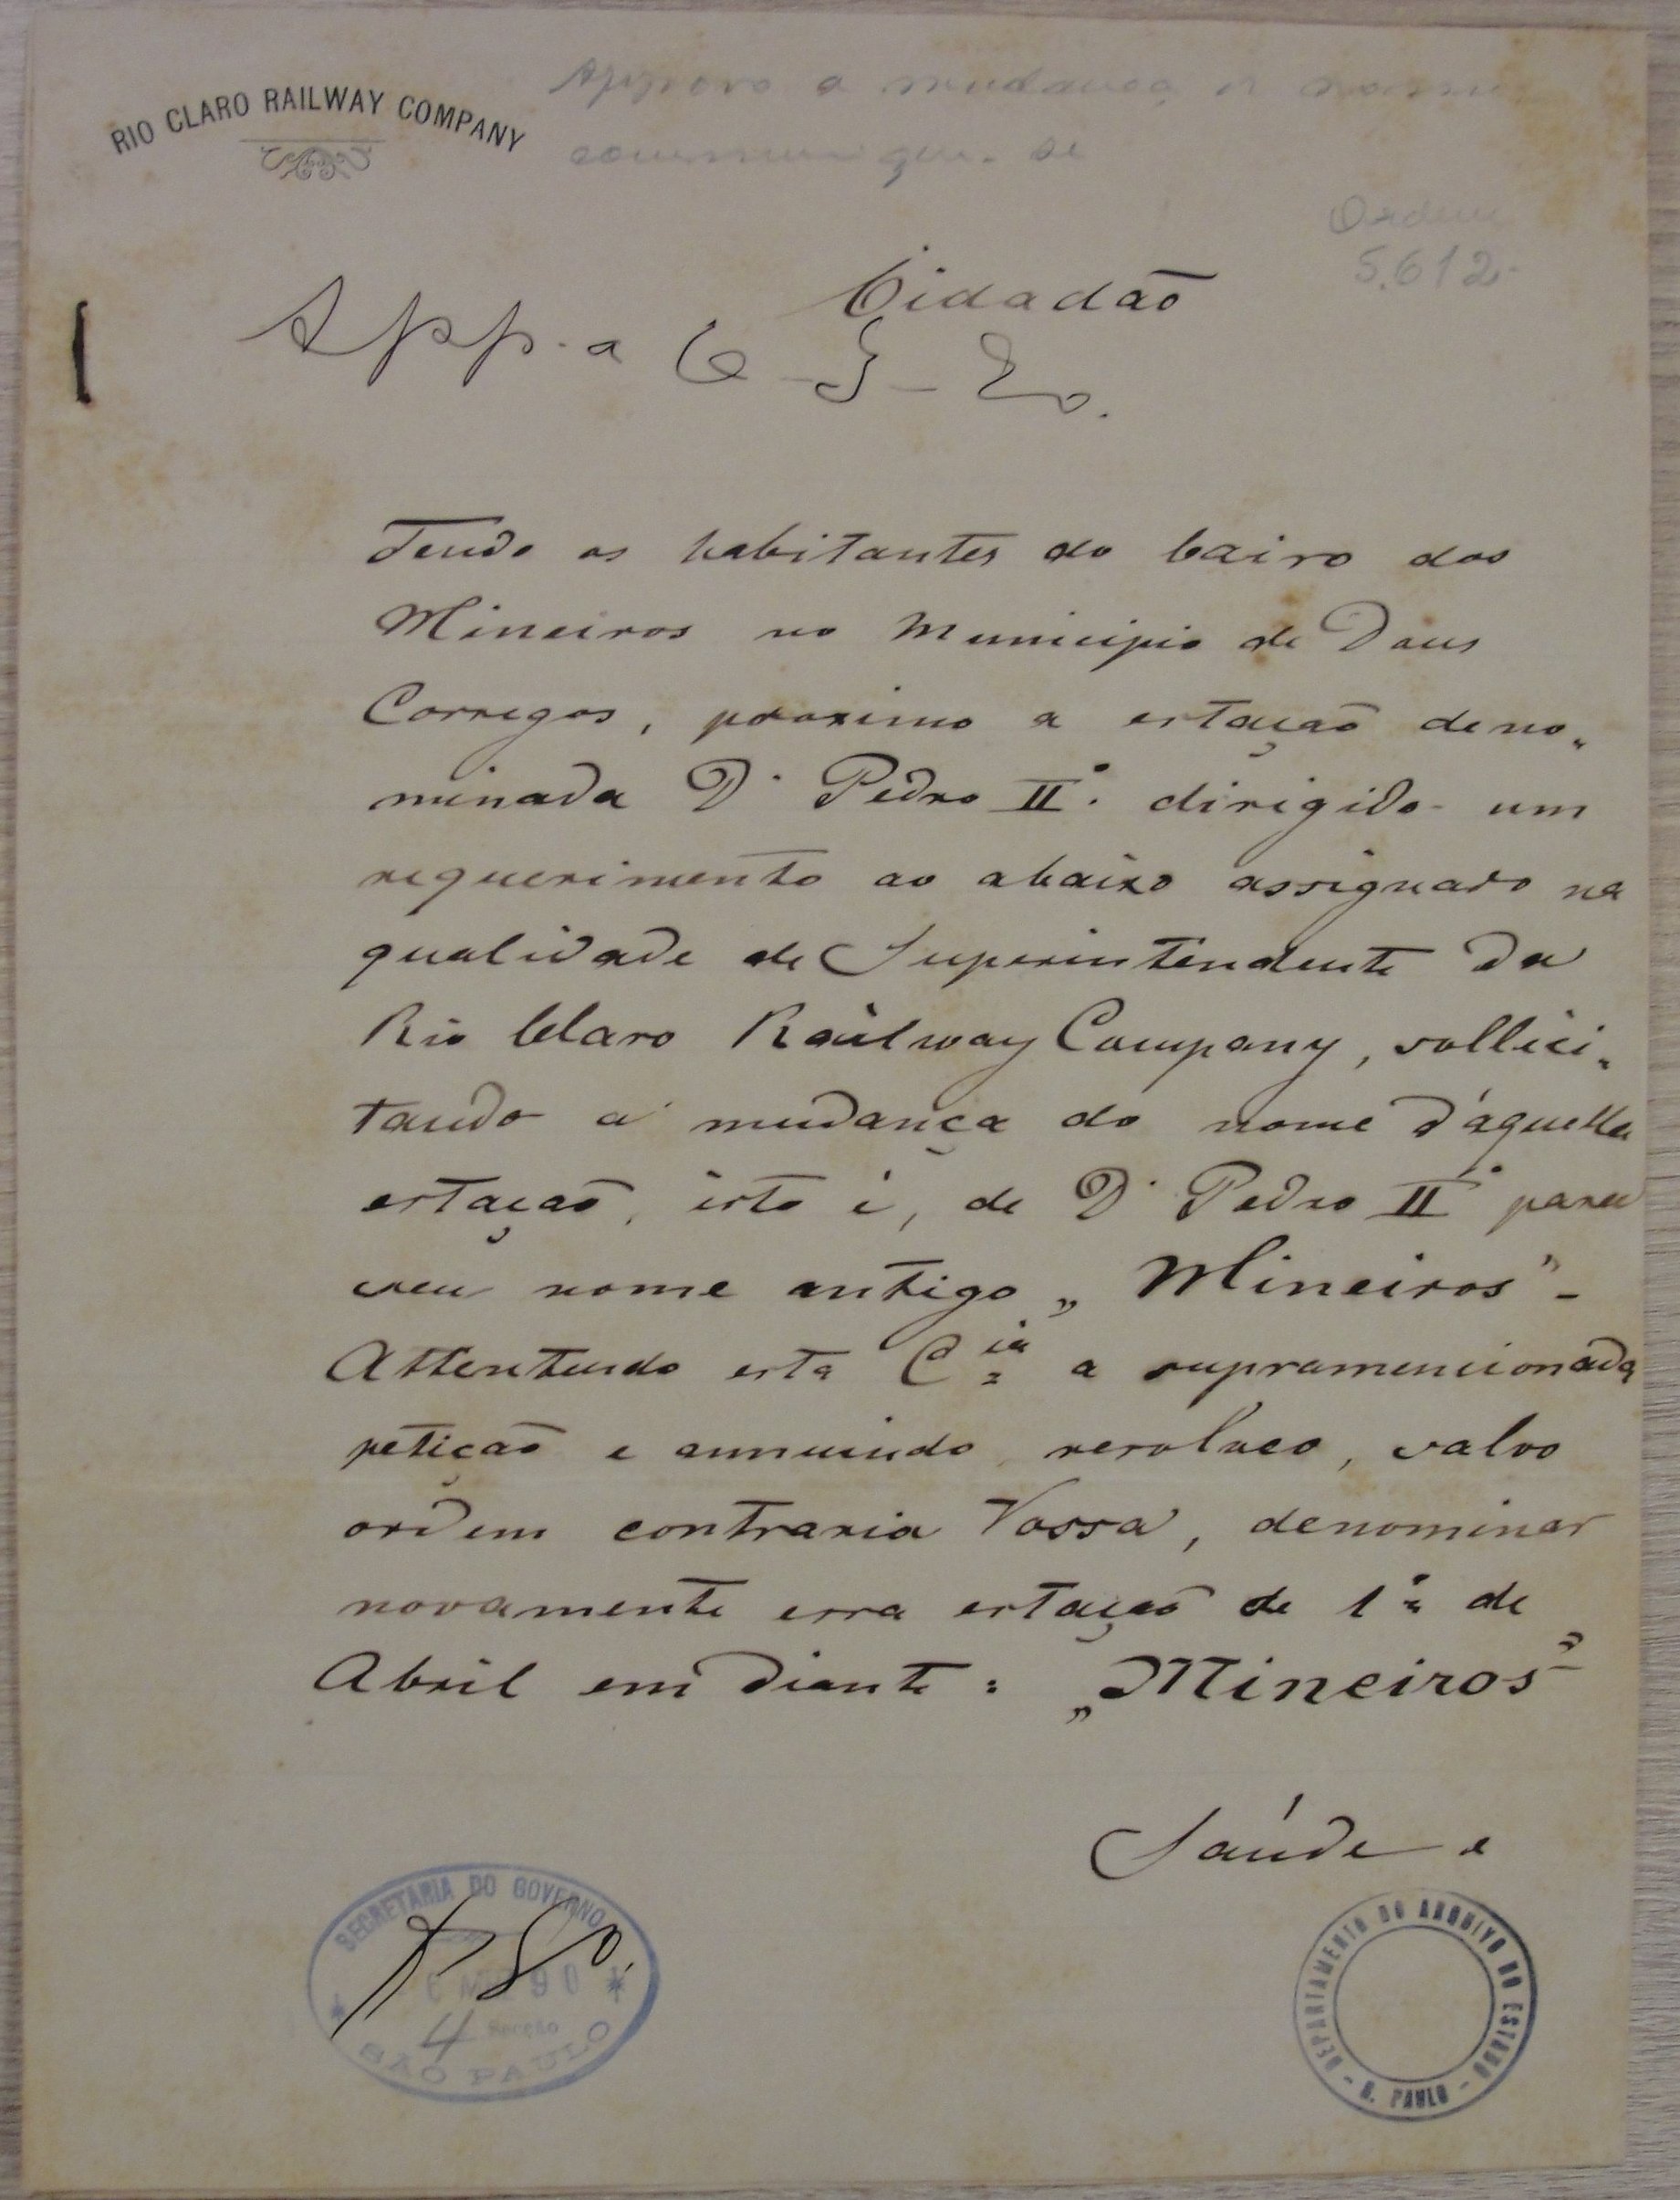 RIO CLARO RAILWAY COMPANY
Approvo a mudança
communique-se
Ordem
5.612
Cidadão
App.
Tendo os habitantes do bairo dos
Mineiros no Municipio de Dous
Corregos, proximo a estação deno-
minada D. Pedro IIº. dirigido um
requerimento ao abaixo assignado na
qualidade de Superintendente da
Rio Claro Railway Company, sollici-
tando a mudança do nome d'aquella
estação, isto é, de D. Pedro IIº para
seu nome antigo „Mineiros” -
Attentendo esta Cia a supramencionada
petição e annuindo resolveo, salvo
ordem contraria Vossa, denominar
novamente essa estação de 1º de
Abril em diante: „Mineiros”
Saúde e
SECRETARIA DO GOVERNO
90
4 Secção
SÃO PAULO
DEPARTAMENTO DO ARQUIVO DO ESTADO
- S. PAULO -